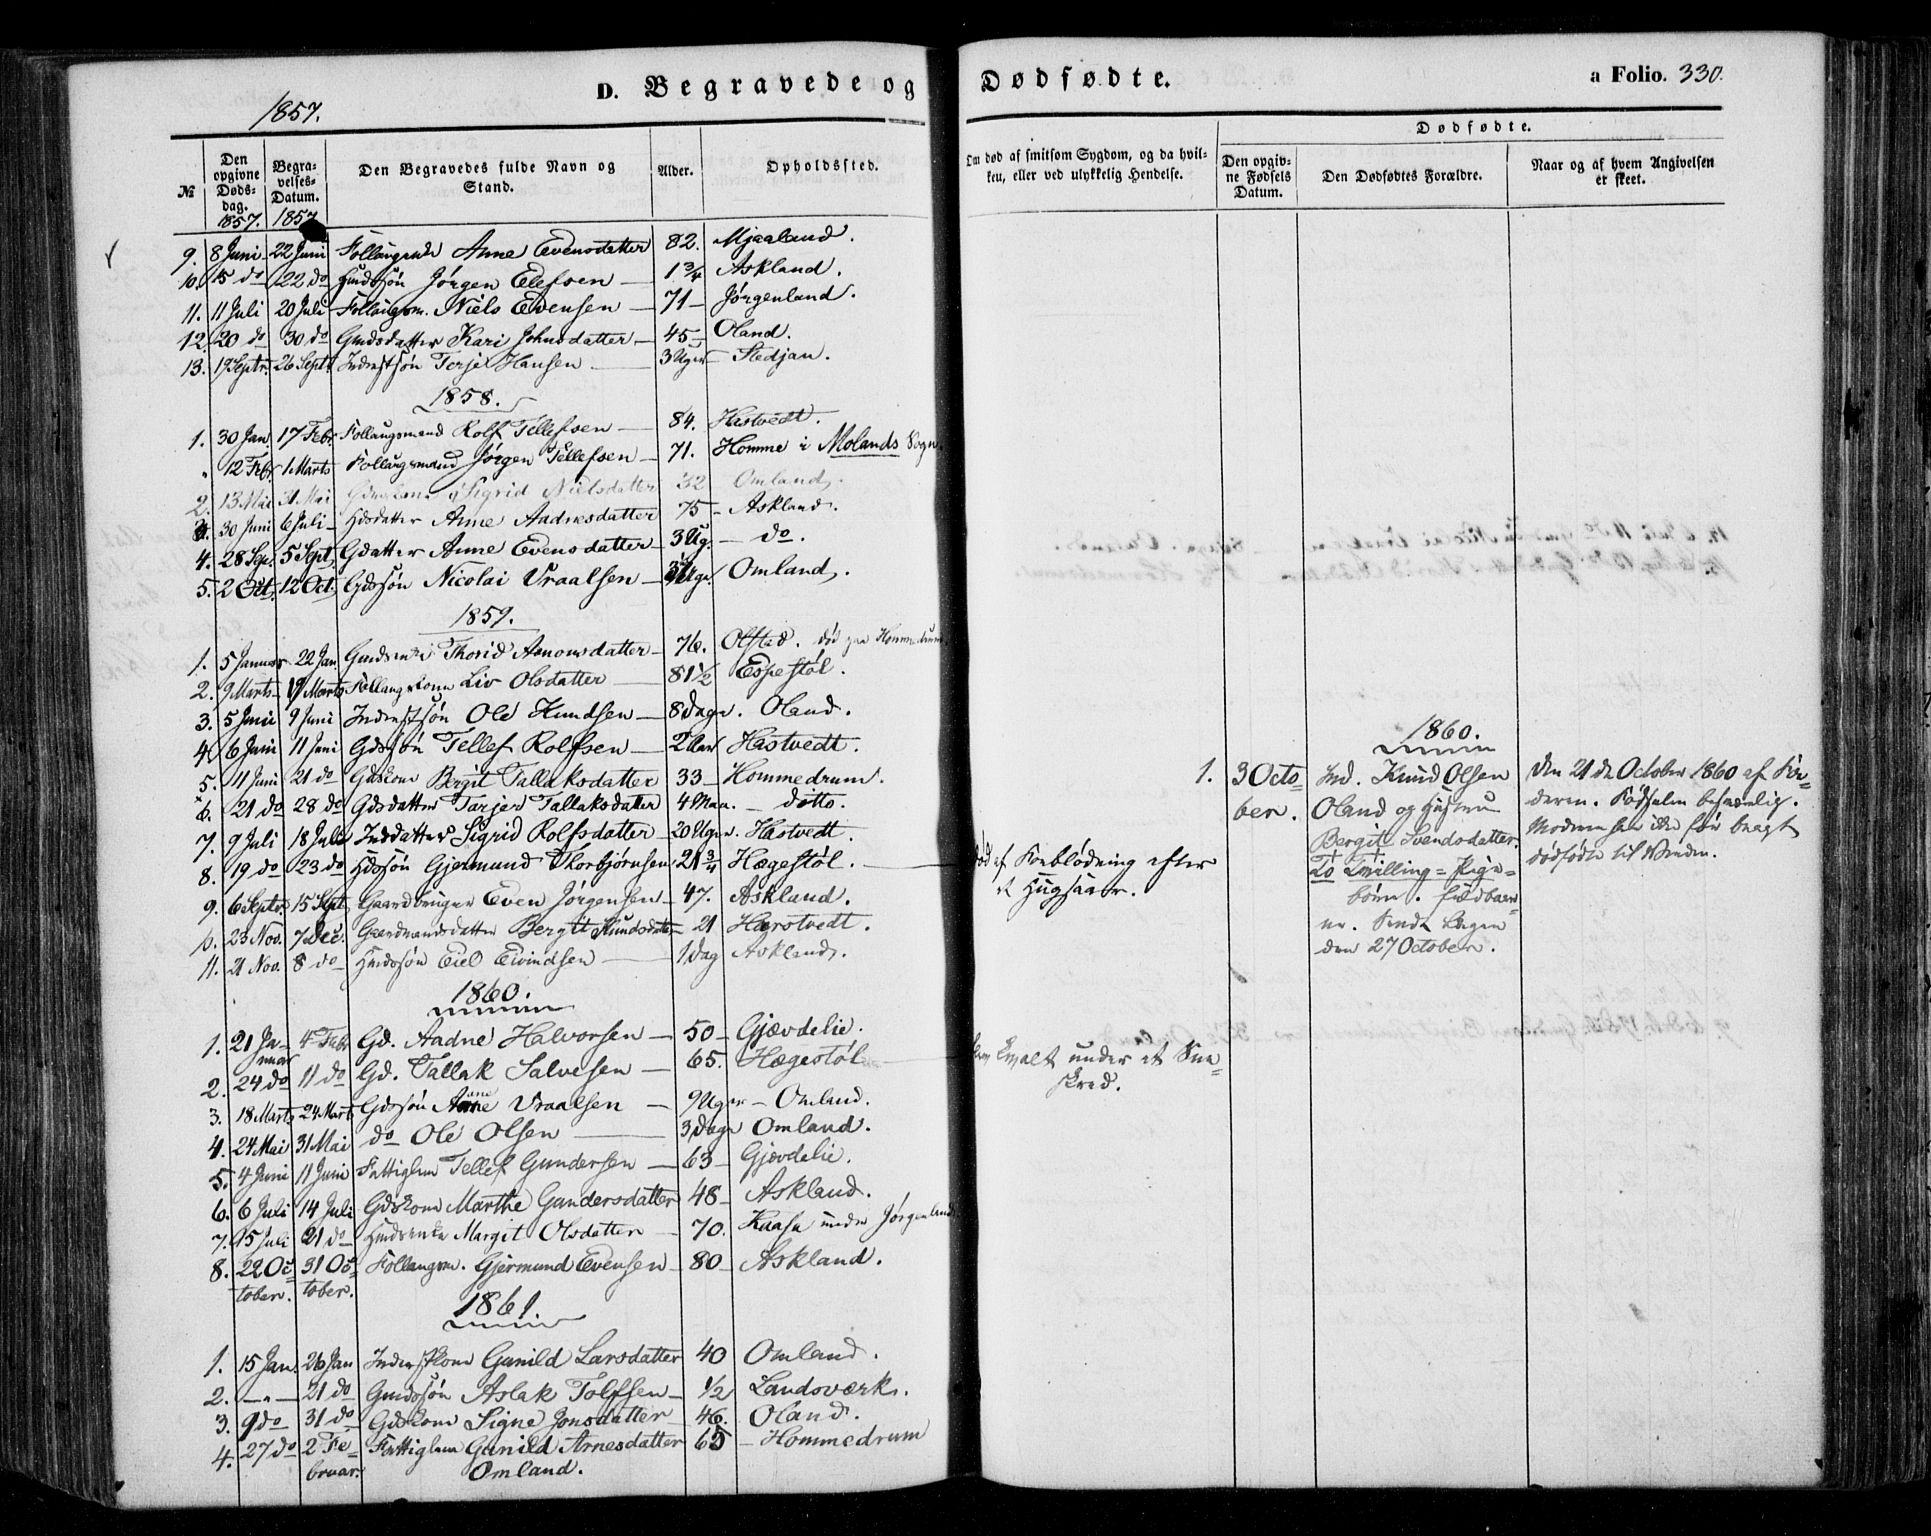 D. Begravede og Dødfødte. a Folio. 330.
1857.
№ Den opgivne Døds-dag. 1857. Begra-velses-Datum. 1857 Den Begravedes fulde Navn og Stand. Alder. Opholdssted. Om død af smitsom Sygdom, og da hvil-ken, eller ved ulykkelig Hendelse. Dødfødte. Den opgiv-ne Fødsels Datum. Den Dødfødtes Forældre. Naar og af hvem Angivelsen er skeet.
9. 8 Juni 22 Juni Anne Evensdatter 82. Mjaaland.
10. 15 do 22 do Jørgen Elefsen 1 3/4 Askland.
11. 11 Juli 20 Juli Niels Evensen 71 Jørgenland.
12. 20 do 30 do Gmdsdatter Kari Johnsdatter 45 Oland.
13. 19 Septr. 26 Sept Inderstsøn Terje Hansen 3 Uger Stedjan.
1858.
1. 30 Jan. 17 Febr. Follaugsmand Rolf Tellefsen 84. Hastvedt.
" 12 Feb. 1 Marts Follaugsmand Jørgen Tellefsen 71. Homme i Molands Sogn
2. 13 Mai 31 Mai Sigrid Nielsdatter 32 Omland.
30 Juni 6 Juli Anne Aadnesdatter 75 Askland.
4. 28 Sep. 5 Sept. Gdatter Anne Evensdatter 3 Ug. do.
5. 2 Oct. 12 Oct. Gdssøn Nicolai Vraalsen Uger Omland.
1859.
1. 5 Januar 22 Jan Thorid datter 76. Olstad. død paa Hommedrum
2. 9 Marts 19 Marts Liv Olsdatter 81 1/2 Espestøl.
3. 5 Juni 9 Juni Inderstsøn Ole Kundsen 8 Dage. Oland.
4. 6 Juni 11 Juni Gdssøn Tellef Rolfsen 2 Aar Hastvedt.
5. 11 Juni 21 do Gdskone Bergit Tallaksdatter 33 Hommedrum.
6. 21 do 28 do Gdsdatter Tarjer Tallaksdatter 4 Maan. ditto.
7. 9 Juli 18 Juli Inddatter Sigrid Rolfsdatter 20 Uger. Hastvedt.
8. 19 do 23 do Gjermund Thorbjørnsen 21 3/4 Hægestøl. død af Forblødning efter
et Hugsaar.
9. 6 Septr. 15 Sept. Gaardbruger Even Jørgensen 47. Askland.
10. 23 Nov. 7 Dec. Gaardmandsdatter Bergit Kundsdatter 21 Harstvedt.
11. 21 Nov. 8 do Eiel Eivindsen 1 Dag Askland.
1860.
1. 21 Januar 4 Febr Gd. Aadne Halvorsen 50 Gjævdelie.
2. 24 do 11 do Gd. Tallak Salvesen 65. Hægestøl qvalt under et Snee-
skred.
3. 18 Marts 24 Marts Gdssøn Vraalsen 9 Uger Omland.
4. 24 Mai 31 Mai do Ole Olsen 3 Dage Omland.
5. 4 Juni 11 Juni Fattiglem Tellef Gundersen 63 Gjævdelie.
6. 6 Juli 14 Juli Gdskone Marthe Gundersdatter 48 Askland.
7. 15 Juli 21 do Margit Olsdatter 70. Kaasa under Jørgenland
8. 22 Oc-tober. 31 Oc-tober. Follaugsm. Gjermund Evensen 80 Askland.
1861.
1. 15 Jan. 26 Jan Inderstkone Gunild Larsdatter 40 Omland.
2. — " — 21 do Gmdssøn Aslak Tolfsen 1/2 Landsværk.
3. 9 do 31 do Gdskone Signe Jonsdatter 46. Oland.
4. 27 do 2 Fe-bruar. Fattiglem Gunild Arnesdatter 65 Hommedrum
Omland.
1860.
1. 3 Octo-
ber.
Ind. Knud Olsen
Oland og Hustru
Bergit Svendsdatter.
To Tvilling-Pige-
børn. fuldbaar-
ne.
den 27 October.
Den 21 de October 1860 af Fa-
deren. Fødselen besværlig.
Moderen har ikke før bragt
dødfødte til Verden.